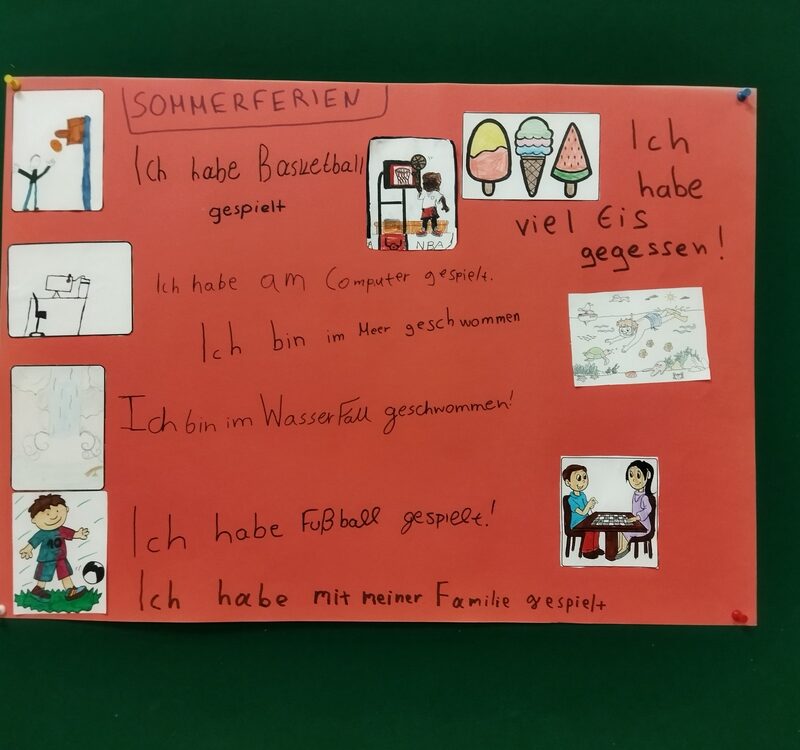 SOMMERFERIEN
Ich habe Basketball
gespielt
NBA
Ich
habe
viel Eis
gegessen!
Ich habe am Computer gespielt.
Ich bin im Meer geschwommen
Ich bin im WasserFall geschwommen!
Ich habe Fußball gespielt!
Ich habe mit meiner Familie gespielt